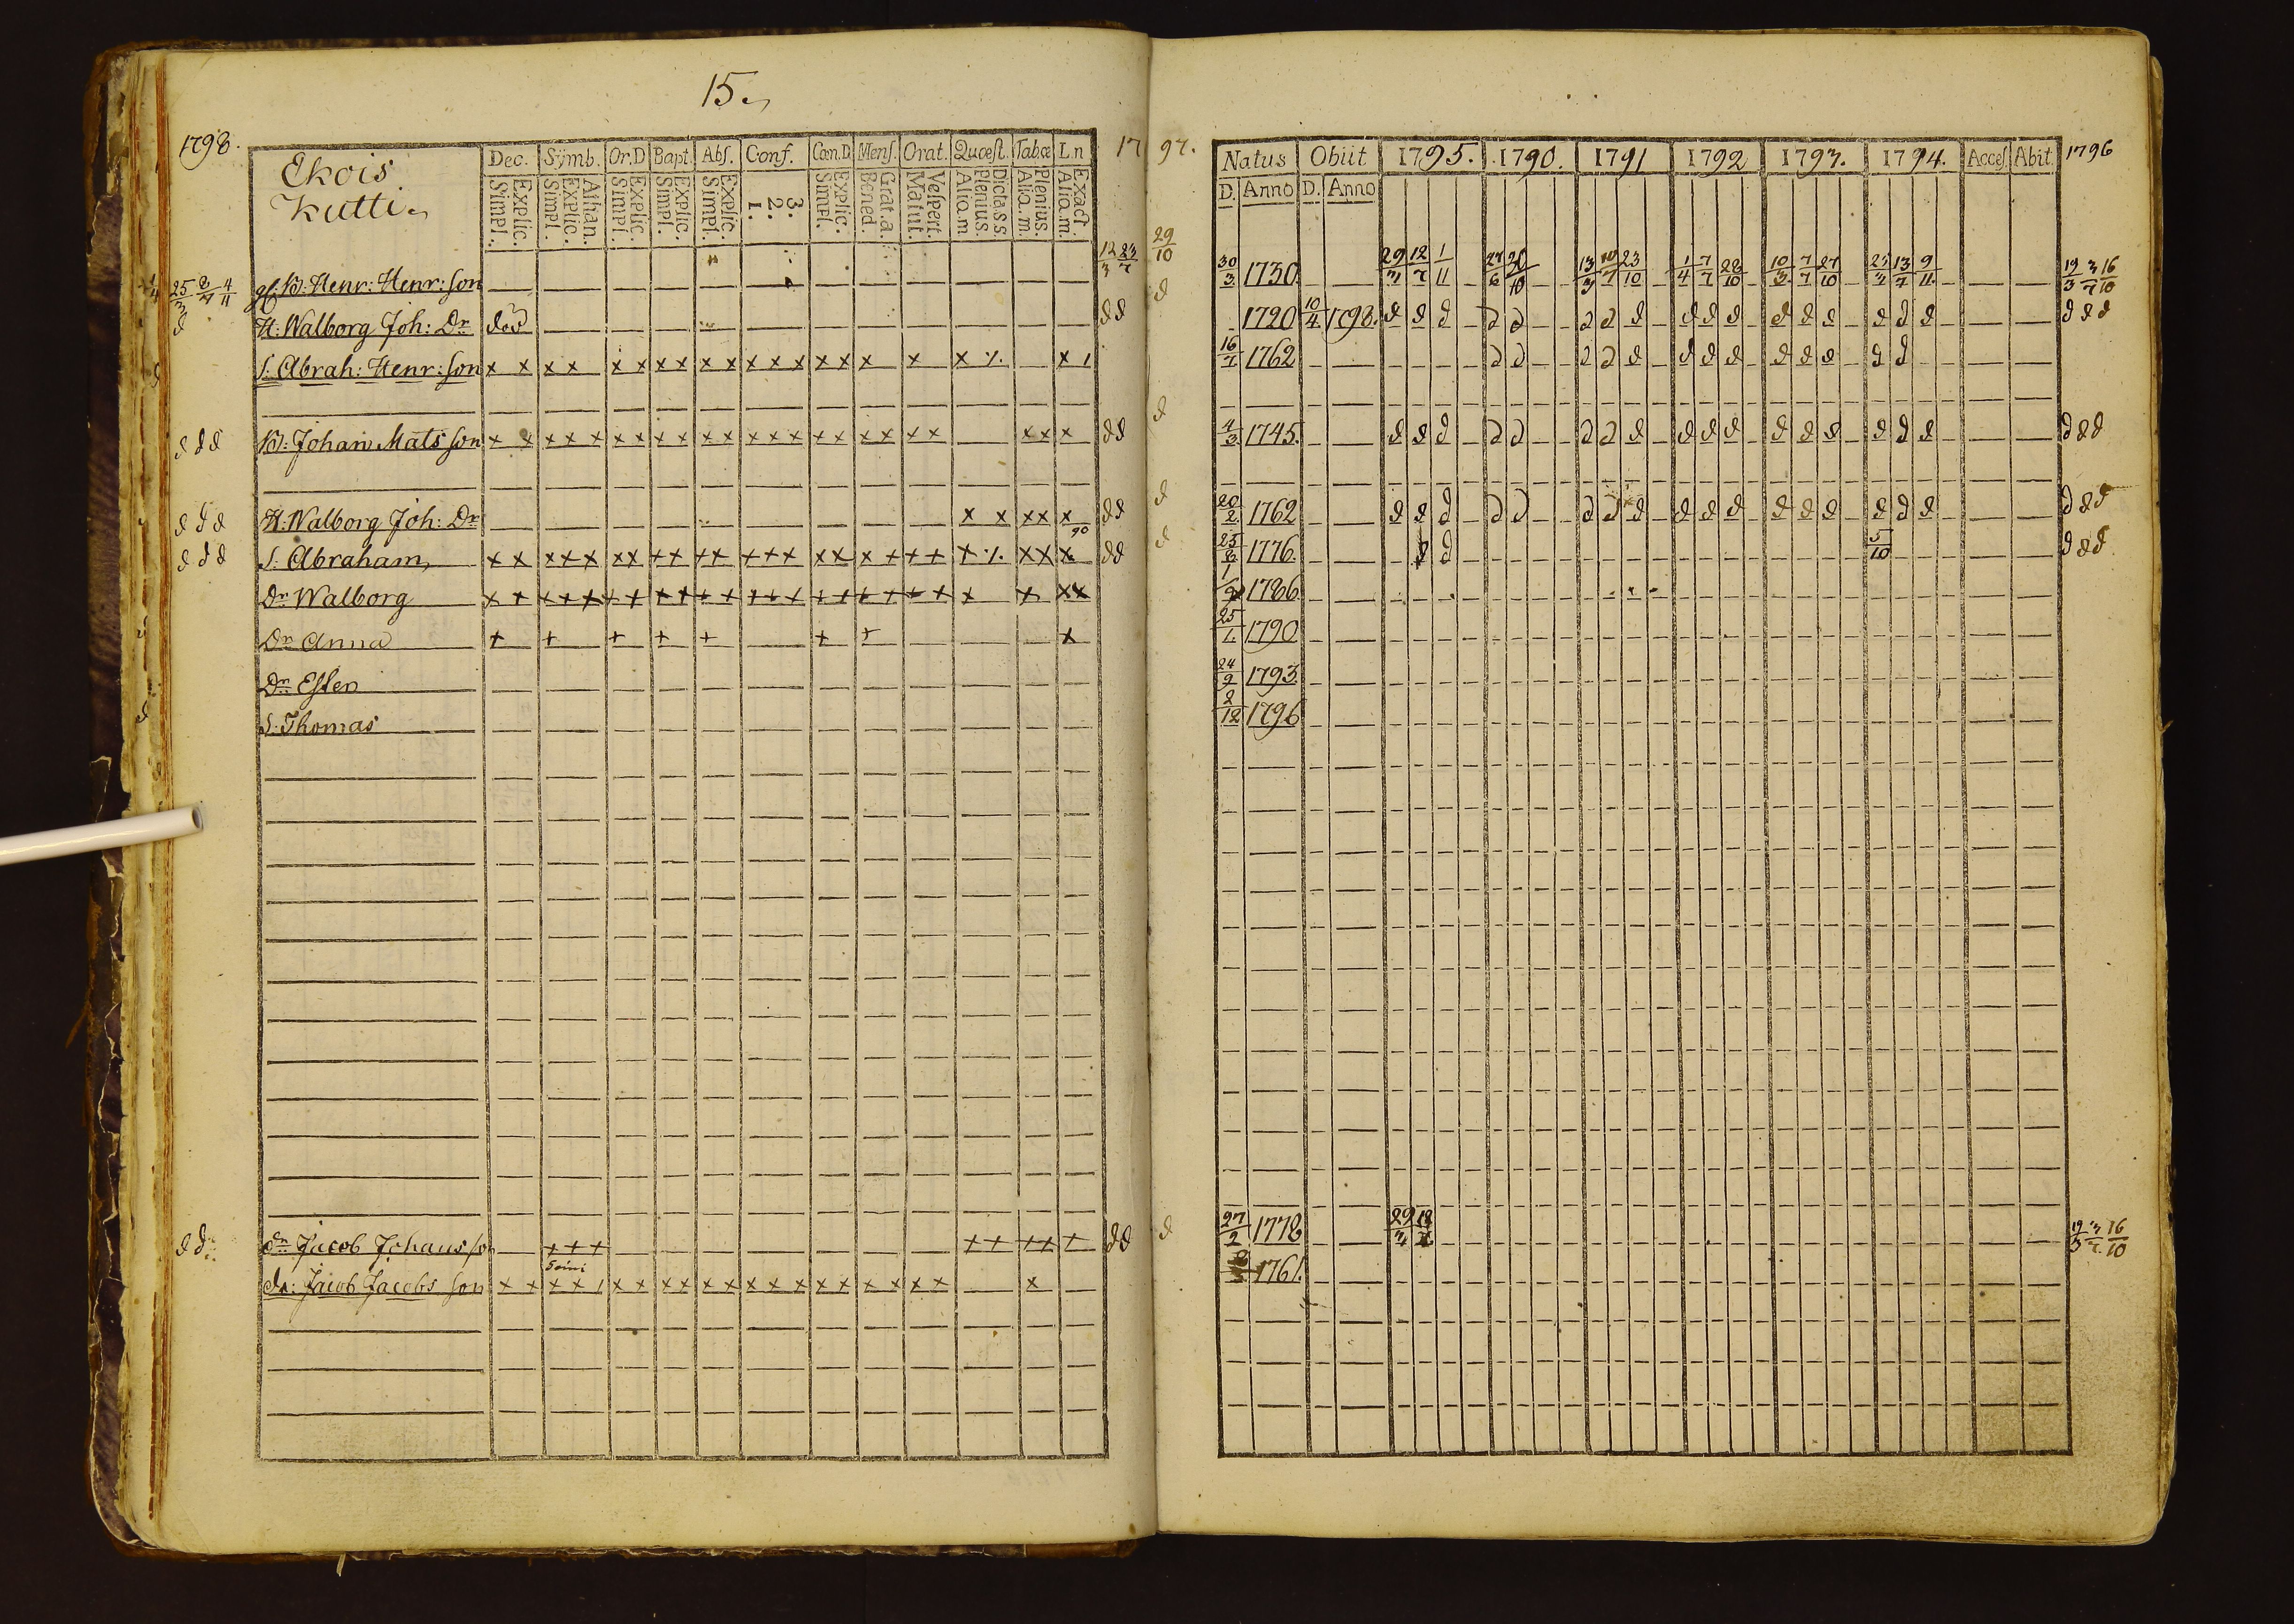 15.
1798.
Ekois
Kutti
Dec. Symb. Or.D Bapt. Abs. Conf. Cœn.D Mens. Orat. Quæst. Tabœ L.n
Explic. Simpl. Athan. Explic. Simpl. Explic. Simpl. Explic. Simpl. Explic. Simpl. 3. 2. 1. Explic. Simpl. Grat.a. Bened. Vespert. Matut. Dicta s s. Plenius. Aliq.m Plenius. Aliq.m Exact. Aliq.m.
17 97.
12/3 23/7 29/10
25/3 8/7 4/11 B: Henr: Henr: son
H: Walborg Joh: Dr död
S: Abrah: Henr: son x x x x x x x x x x x x x x x x x x ٪ x
d d d B: Johan Mats son x x x x x x x x x x x x x x x x x x x x x x x d d
d d d H: Walborg Joh: Dr x x x x x d d
90
d d d S: Abraham x x x x x x x x x x x x x x x x x x x x x ٪ x x x d d
Dr Walborg
Dr Anna + + + + + + + x
Dr Ester
S: Thomas
d d dr Jacob Johans son + + + + + + + + d d
Soini
dr: Jacob Jacobs son
Natus Obiit 1795. 1790. 1791 1792 1793. 1794. Acces. Abit. 1796
D. Anno D. Anno
30/3 1730 29/3 12/7 1/11 13/3 10/7 23/10 1/4 7/7 28/10 10/3 7/7 27/10 25/3 13/7 9/11 19/3 3/7 16/10
1720 10/4 1798. d d d d d d d d d d d d d d d d d d d d
16/7 1762 d d d d d d d d d d d d d
4/3 1745. d d d d d d d d d d d d d d d d d d d d
20/2 1762 d d d d d d d d d d d d d d d d d d d d
25/8 1776. d d 5/10 d d d
1/9 1786
25/1 1790
24/9 1793
2/12 1796
27/2 1778 29/3 12/7 19/3 3/7 16/10
1761.